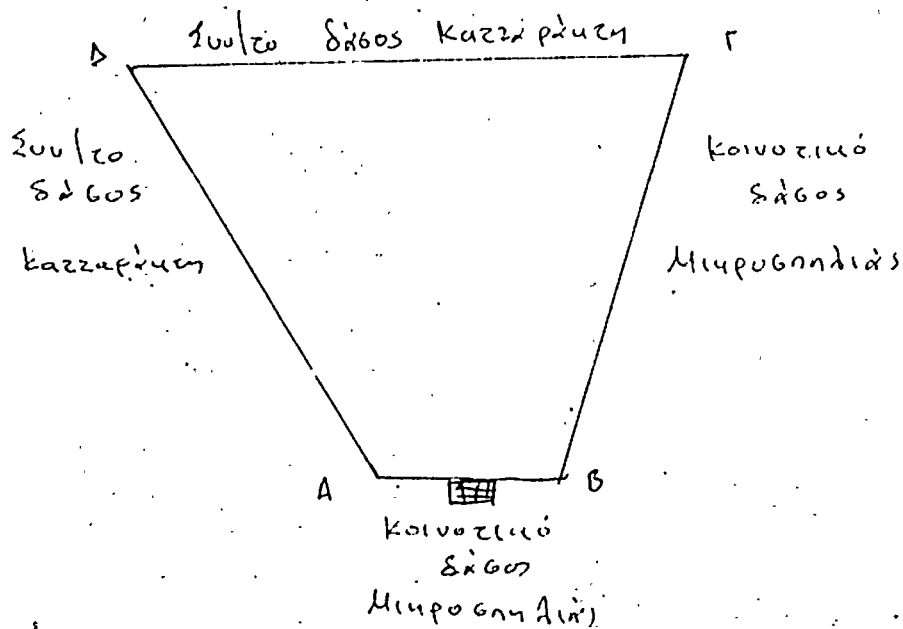 Δ Συν/το δάσος Καταράκτη Γ
Συν/το
δάσος
Καταράκτη
Κοινοτικό
δάσος
Μικροσπηλιάς
Α Β
Κοινοτικό
δάσος
Μικροσπηλιάς